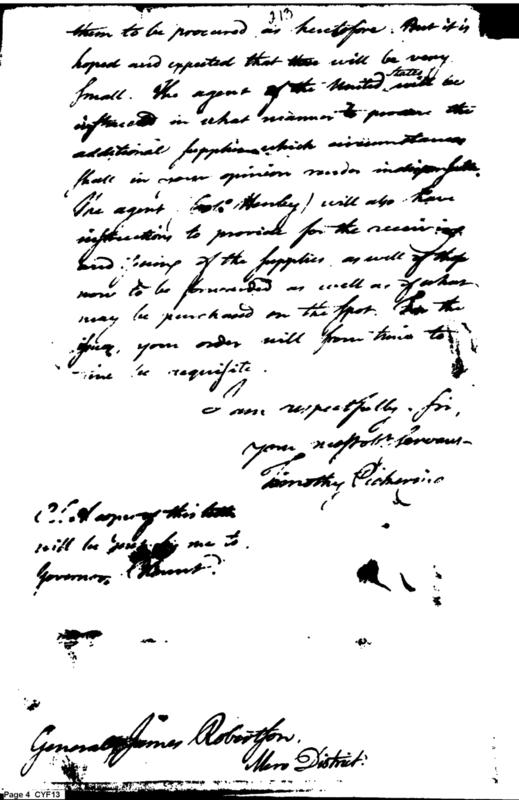 213
them to be procured as heretofore. But it is
hoped and expected that these will be very
small. The agent of the United States will be
instructed in what manner to procure the
additional supplies which circumstances
shall in your opinion render indispensable.
The agent (Colo. Henley) will also have
instructions to provide for the receiving
and issuing of the supplies as well of those
now to be forwarded as well as of what
may be purchased on the spot. For the
issues, your order will from time to
time be requisite.
I am respectfully, Sir,
your most obt. servant
Timothy Pickering
P.S. A copy of this letter
will be sent by me to
Governor Blount.
General James Robertson.
Mero District.
Page 4 CYF13